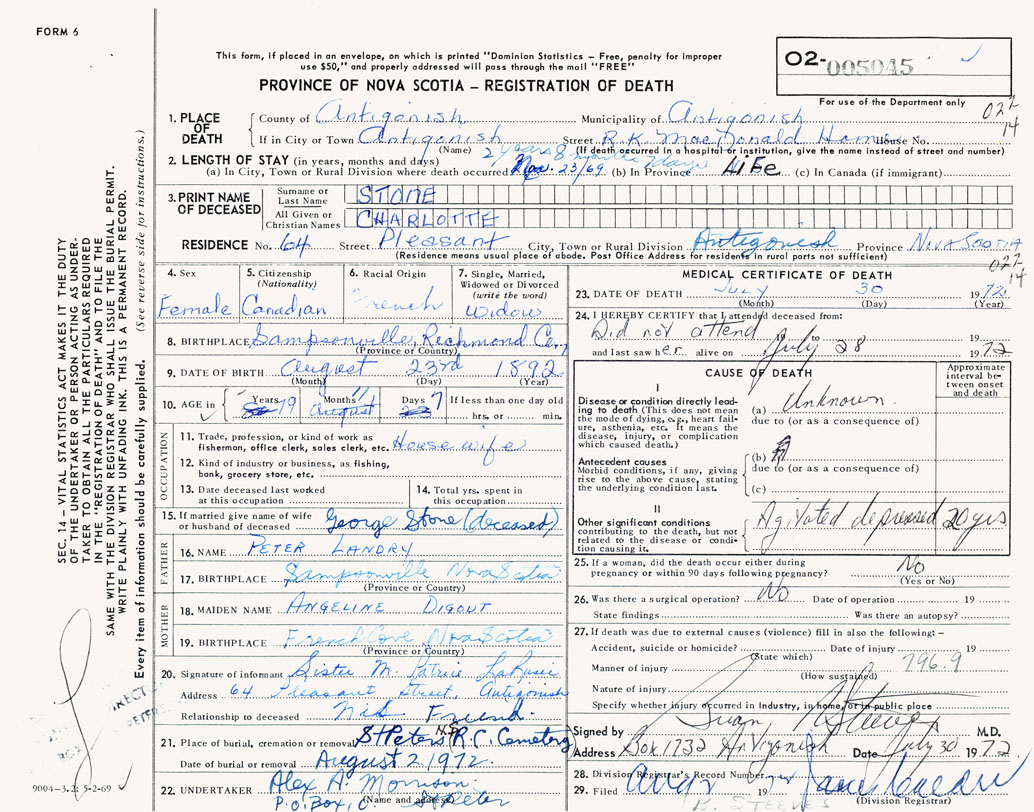 FORM 6
This form, if placed in an envelope, on which is printed "Dominion Statistics – Free, penalty for improper
use $50," and properly addressed will pass through the mail "FREE"
PROVINCE OF NOVA SCOTIA – REGISTRATION OF DEATH
02-005045
For use of the Department only
022
14
1. PLACE OF DEATH
County of Antigonish Municipality of Antigonish
If in City or Town Antigonish Street R.K. MacDonald Home House No.
(Name) (If death occurred in a hospital or institution, give the name instead of street and number)
2 years 8 months 7 days
2. LENGTH OF STAY (in years, months and days)
(a) In City, Town or Rural Division where death occurred Nov. 23/69 (b) In Province Life (c) In Canada (if immigrant)
3. PRINT NAME OF DECEASED
Surname or Last Name STONE
All Given or Christian Names CHARLOTTE
RESIDENCE No. 64 Street Pleasant City, Town or Rural Division Antigonish Province NOVA SCOTIA
(Residence means usual place of abode. Post Office Address for residents in rural parts not sufficient)
022
14
4. Sex
Female
5. Citizenship (Nationality)
Canadian
6. Racial Origin
French
7. Single, Married, Widowed or Divorced (write the word)
Widow
8. BIRTHPLACE Sampsonville, Richmond Co.,
(Province or Country)
9. DATE OF BIRTH August 23rd 1892
(Month) (Day) (Year)
10. AGE in Years 79 Months 11 August Days 7 If less than one day old
hrs. or min.
OCCUPATION
11. Trade, profession, or kind of work as
fisherman, office clerk, sales clerk, etc. Housewife
12. Kind of industry or business, as fishing,
bank, grocery store, etc.
13. Date deceased last worked
at this occupation
14. Total yrs. spent in
this occupation
15. If married give name of wife
or husband of deceased George Stone (deceased)
FATHER
16. NAME PETER LANDRY
17. BIRTHPLACE Sampsonville Nova Scotia
(Province or Country)
MOTHER
18. MAIDEN NAME ANGELINE DIGOUT
19. BIRTHPLACE French Cove Nova Scotia
(Province or Country)
20. Signature of informant Sister M. Patrice LaRusic
Address 64 Pleasant Street, Antigonish
N.S.
Relationship to deceased Friend.
21. Place of burial, cremation or removal St Peters R.C. Cemetery
Date of burial or removal August 2, 1972.
22. UNDERTAKER Alex A. Morrison
(Name and address)
P.O. Box, St Peter
MEDICAL CERTIFICATE OF DEATH
23. DATE OF DEATH July 30 1972
(Month) (Day) (Year)
24. I HEREBY CERTIFY that I attended deceased from:
Did not attend to
and last saw her alive on July 28 1972
CAUSE OF DEATH
Approximate interval between onset and death
I
Disease or condition directly leading
to death (This does not mean
the mode of dying, e.g., heart failure,
asthenia, etc. It means the
disease, injury, or complication
which caused death.)
(a) Unknown
due to (or as a consequence of)
Antecedent causes
Morbid conditions, if any, giving
rise to the above cause, stating
the underlying condition last.
(b)
due to (or as a consequence of)
(c)
II
Other significant conditions
contributing to the death, but not
related to the disease or condition
causing it.
Agitated depressed 20 yrs
25. If a woman, did the death occur either during
pregnancy or within 90 days following pregnancy? No
(Yes or No)
26. Was there a surgical operation? No Date of operation 19
State findings Was there an autopsy?
27. If death was due to external causes (violence) fill in also the following: –
Accident, suicide or homicide? Date of injury 19
(State which)
796.9
Manner of injury
(How sustained)
Nature of injury
Specify whether injury occurred in Industry, in home, or in public place
Signed by M.D.
Address Box 1732 Antigonish Date July 30 1972
28. Division Registrar's Record Number
29. Filed 19
(Division Registrar)
B. STEEVES
SEC. 14 – VITAL STATISTICS ACT MAKES IT THE DUTY
OF THE UNDERTAKER OR PERSON ACTING AS UNDERTAKER
TO OBTAIN ALL THE PARTICULARS REQUIRED
IN THE "REGISTRATION OF DEATH" AND TO FILE THE
SAME WITH THE DIVISION REGISTRAR WHO SHALL ISSUE THE BURIAL PERMIT.
WRITE PLAINLY WITH UNFADING INK. THIS IS A PERMANENT RECORD.
Every item of information should be carefully supplied. (See reverse side for instructions.)
9004-3.2: 5-2-69